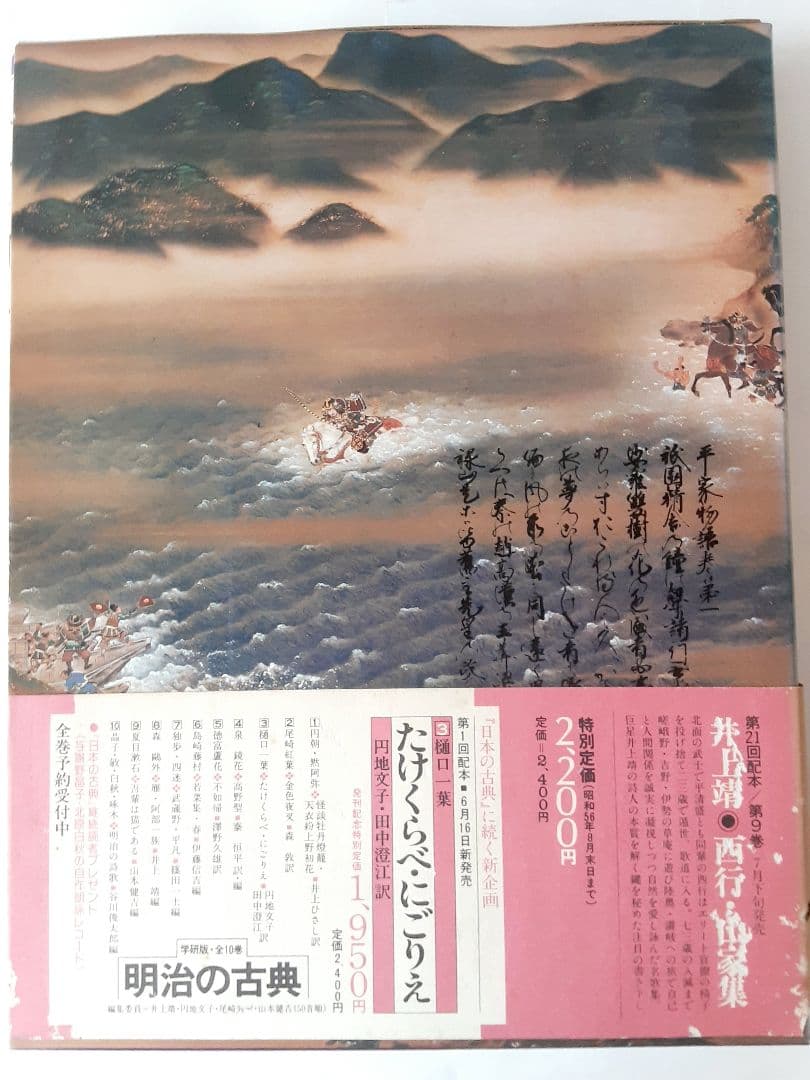 平家物語巻第一
祇園精舎の鐘の聲諸行
第21回配本●第9巻 7月下旬発売
井上靖●西行・山家集
北面の武士で平清盛とも同輩の西行はエリート官僚の椅子
を投げ捨て二三歳で遁世、歌道に入る。七三歳の入滅まで
嵯峨野・吉野・伊勢の草庵に遊び陸奥・讃岐への旅で自己
と人間関係を誠実に凝視しつつ自然を愛し詠んだ名歌集
巨星井上靖の詩人の本質を解く鍵を秘めた注目の書き下し
特別定価(昭和56年8月末日まで)
2,200円
定価=2,400円
『日本の古典』に続く新企画
第1回配本●6月16日新発売
3樋口一葉
たけくらべ・にごりえ
円地文子・田中澄江訳
発刊記念特別定価1,950円
定価2,400円
1円朝・黙阿弥❖怪談牡丹燈籠・天衣紛上野初花❖井上ひさし訳
2尾崎紅葉❖金色夜叉❖森 敦訳
3樋口一葉❖たけくらべ・にごりえ❖円地文子・田中澄江訳
4泉 鏡花❖高野聖❖秦 恒平訳・編
5徳冨蘆花❖不如帰❖澤野久雄訳
6島崎藤村❖若菜集・春❖伊藤信吉編
7独歩・四迷❖武蔵野・平凡❖篠田一士編
8森 鷗外❖雁・阿部一族❖井上 靖編
9夏目漱石❖吾輩は猫である❖山本健吉編
10晶子・敏・白秋・啄木❖明治の詩歌❖谷川俊太郎編
学研版・全10巻
明治の古典
編集委員=井上靖・円地文子・尾崎秀樹・山本健吉(50音順)
●「日本の古典」継続購読者プレゼント
《与謝野晶子・北原白秋の自作朗詠レコード》
全巻予約受付中